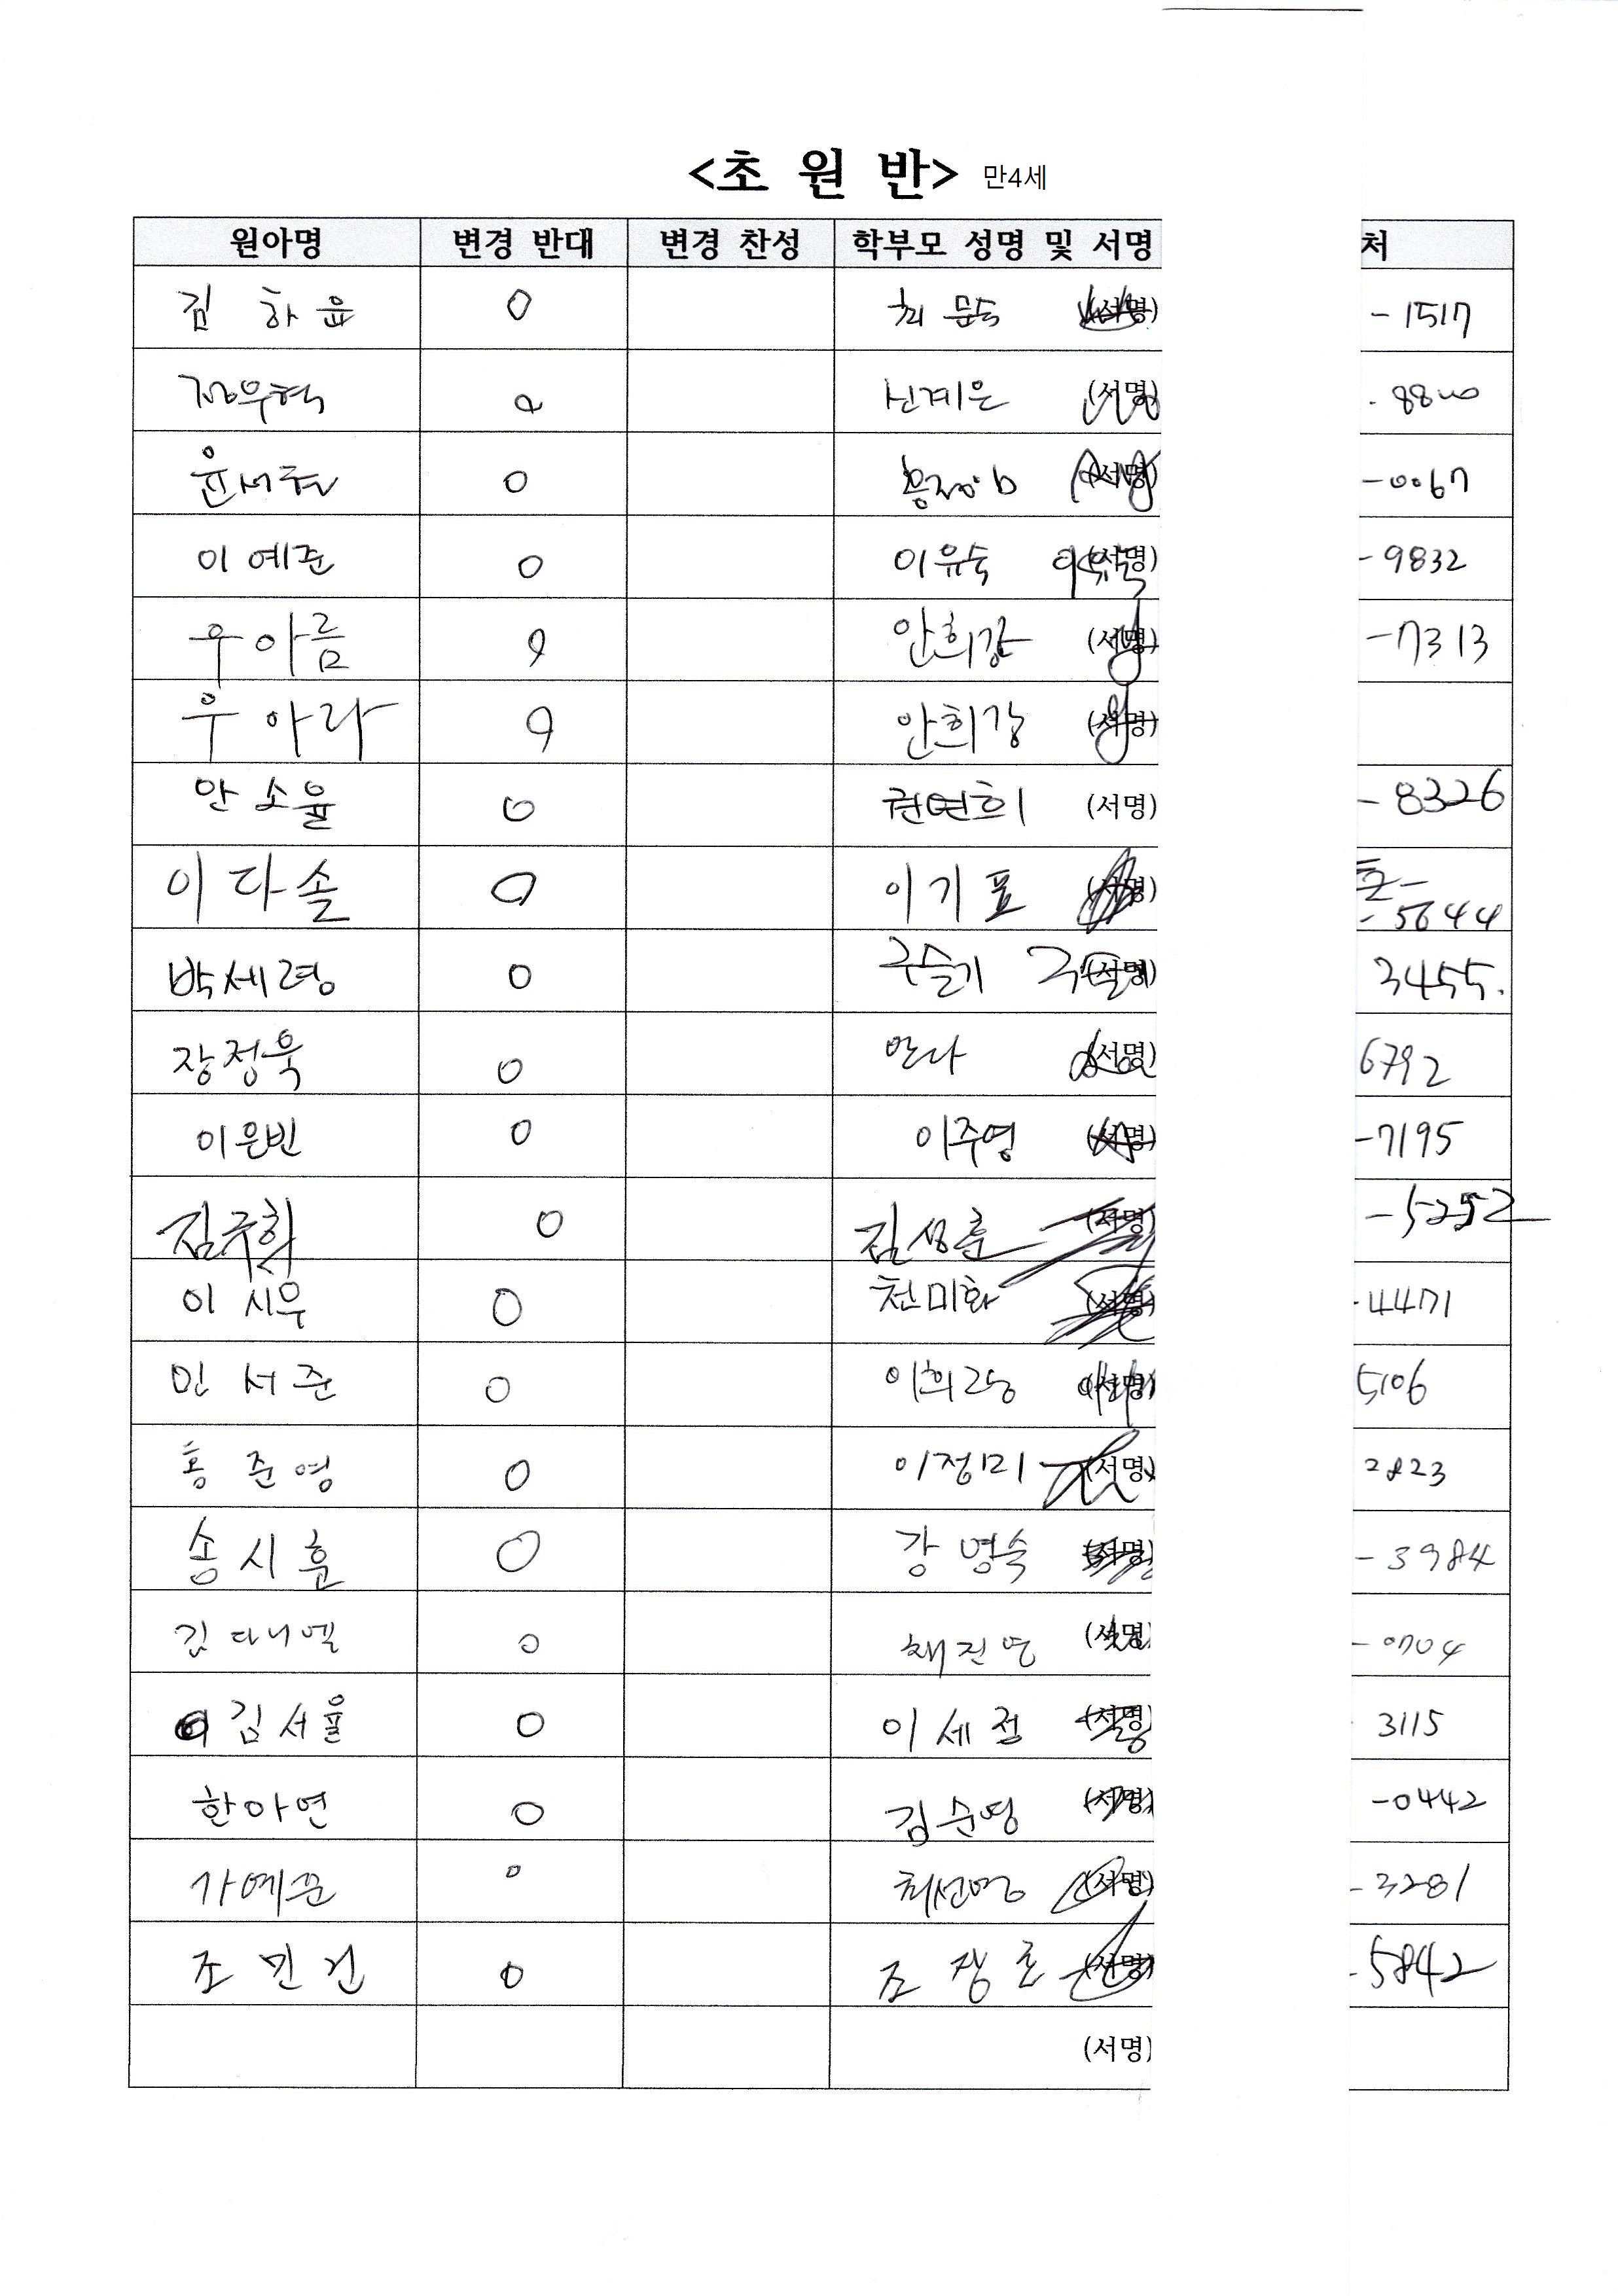 <초 원 반> 만4세
원아명 변경 반대 변경 찬성 학부모 성명 및 서명 처
김 하 윤 O 최 문숙 (서명) - 1517
정우혁 O 신계은 (서명)
윤서준 O (서명) - 0067
이 예준 O 이유숙 (서명) - 9832
우 아름 O 안희강 (서명) - 7313
우 아라 O 안희강 (서명)
안 소율 O 권연희 (서명) - 8326
이 다솔 O 이 기 표 (서명) - 5644
박세령 O 구슬기 (서명) 3455.
장정욱 O 안나 (서명) 6792
이은빈 O 이주영 (서명) - 7195
김주희 O 김성훈 (서명) - 5252
이 시우 O 천미화 (서명) - 4471
민 서 준 O 이희경 (서명) 5106
홍 준 영 O 이정미 (서명) 2823
송 시 훈 O 강 명숙 (서명) - 3984
김 다니엘 O 채진영 (서명) - 0704
김 서 율 O 이 세 정 (서명) 3115
한아연 O 김순영 (서명) - 0442
가예준 O 최선영 (서명) - 3281
조 민 건 O 조 장 호 (서명) - 5842
(서명)